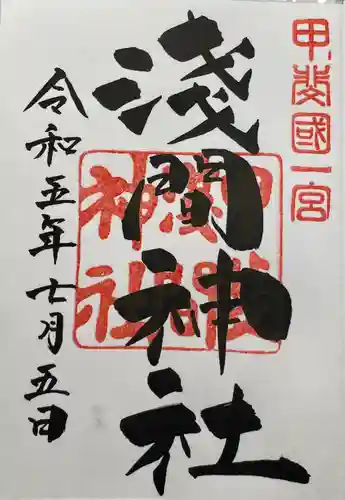 甲斐國一宮
淺間神社
令和五年七月五日
淺間神社